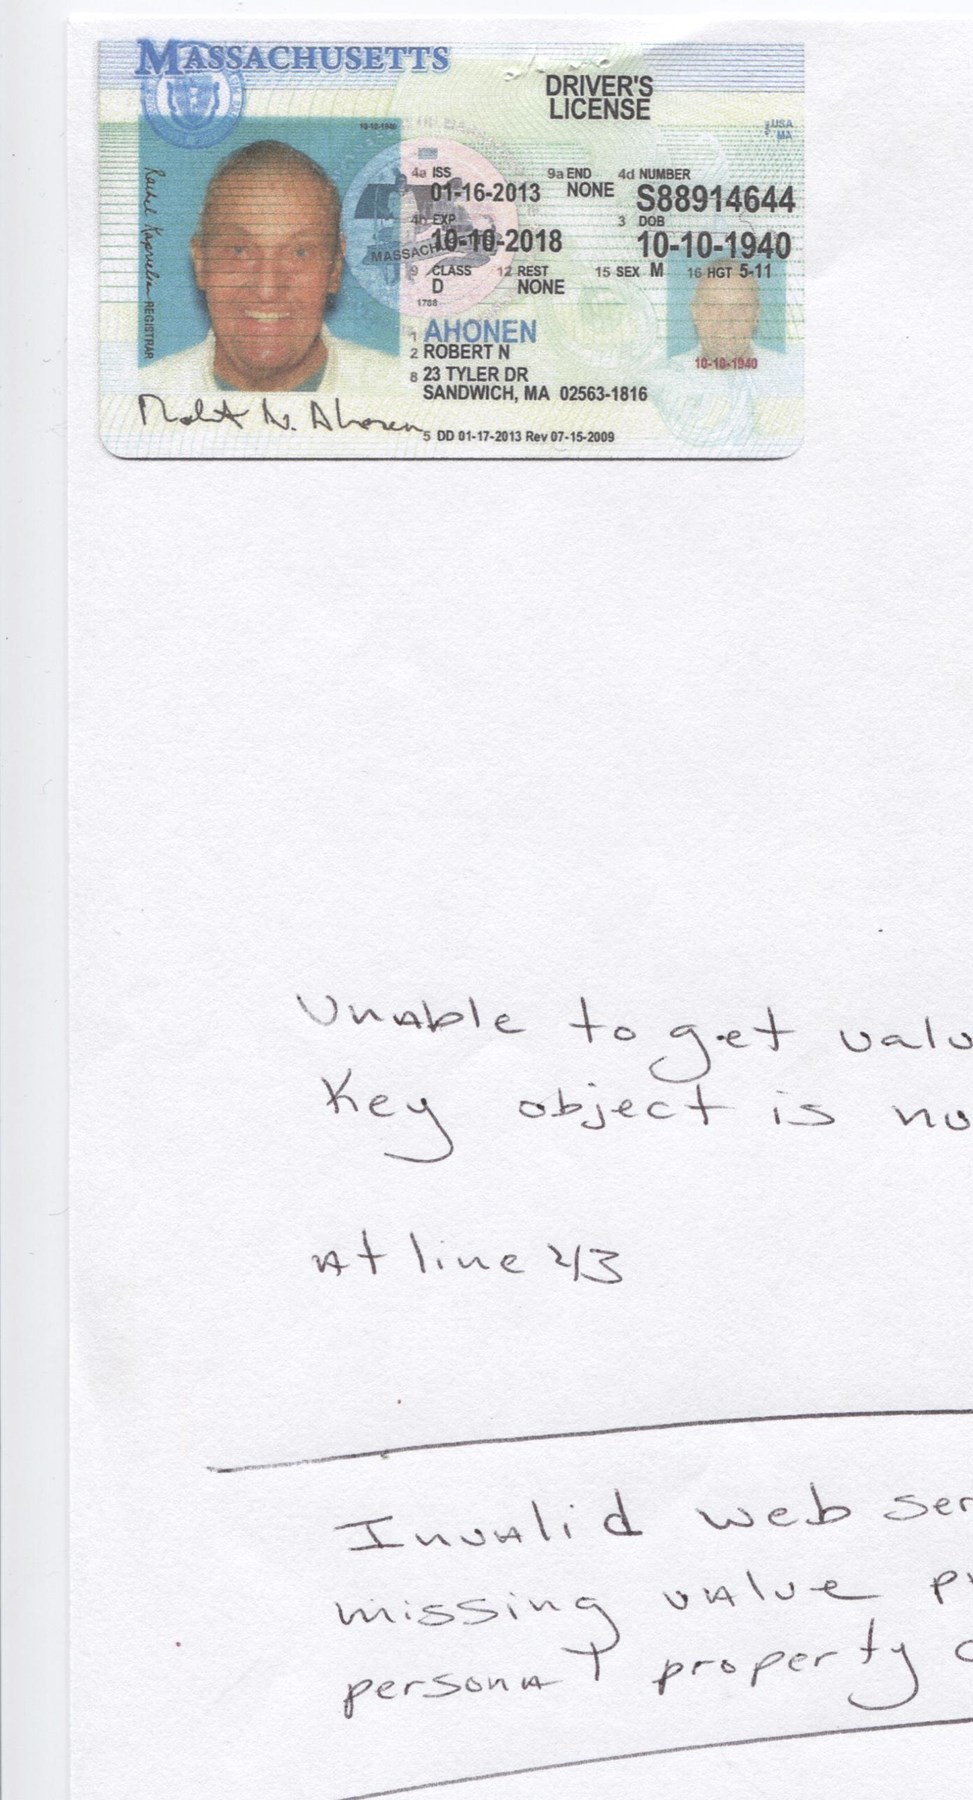 MASSACHUSETTS
DRIVER'S
LICENSE
USA
MA
4a ISS
01-16-2013
9a END
NONE
4d NUMBER
S88914644
4b EXP
10-10-2018
3 DOB
10-10-1940
9 CLASS
D
12 REST
NONE
15 SEX M
16 HGT 5-11
MASSACH
1788
1 AHONEN
2 ROBERT N
8 23 TYLER DR
SANDWICH, MA 02563-1816
10-10-1940
5 DD 01-17-2013 Rev 07-15-2009
REGISTRAR
Unable to get valu
Key object is nu
At line 213
Invalid web ser
missing value pr
personal property